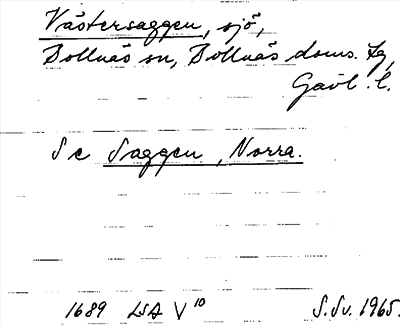 Västersaggen, sjö,
Bollnäs sn, Bollnäs doms. tg,
Gävl. l.
Se Saggen, Norra.
1689 LSA V 10 S.Sv. 1965.